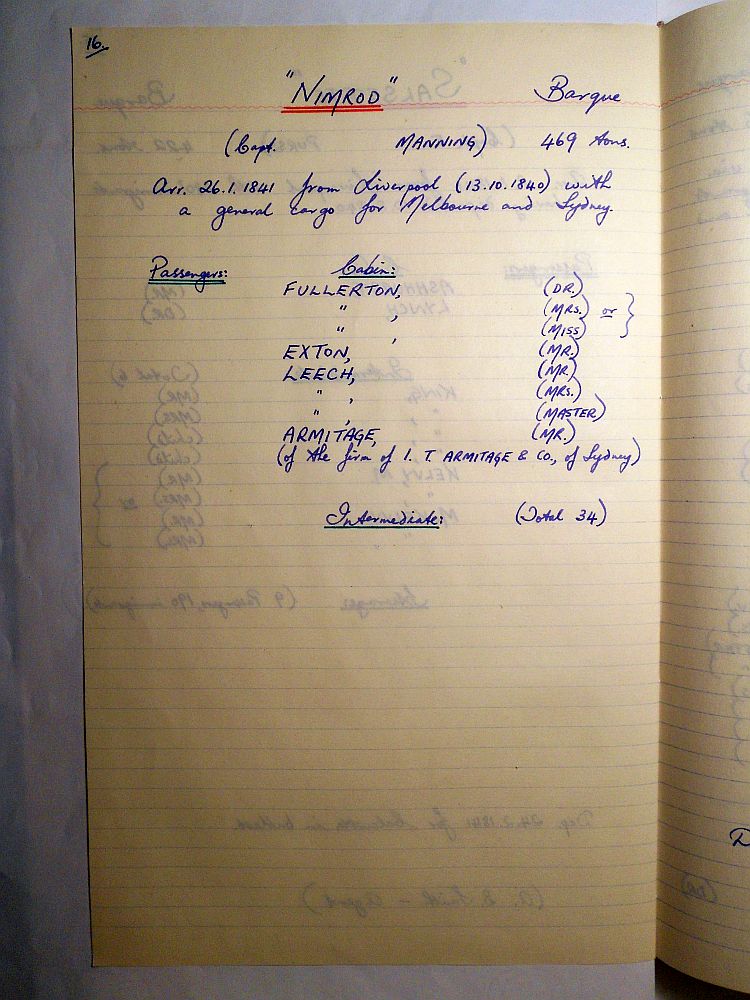 16.
"NIMROD" Barque
(Capt. MANNING) 469 tons.
Arr. 26.1.1841 from Liverpool (13.10.1840) with
a general cargo for Melbourne and Sydney.
Passengers: Cabin:
FULLERTON, (DR.)
" , (MRS.) or }
" , (MISS)
EXTON, (MR.)
LEECH, (MR.)
" , (MRS.)
" , (MASTER)
ARMITAGE, (MR.)
(of the firm of I. T. ARMITAGE & CO., of Sydney)
Intermediate: (Total 34)